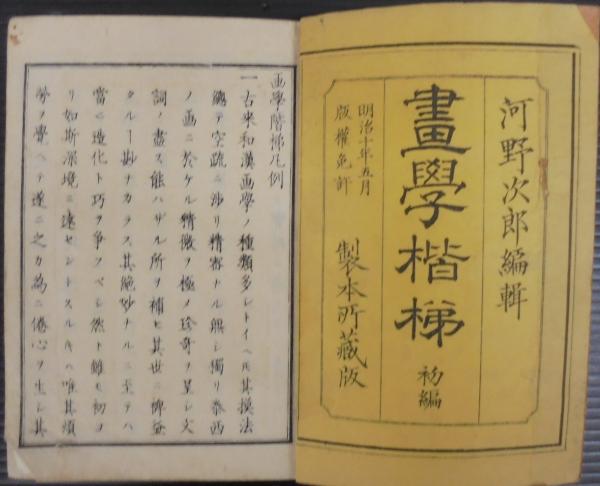 河野次郎編輯
畫學楷梯 初編
明治十年五月
版權免許
製本所藏版
画學階梯凡例
一古来和漢画學ノ種類多シトイヘ𪜈其摸法
總テ空疏ニ渉リ精審ナル無シ獨リ泰西
ノ画ニ於ケル精微ヲ極メ珍竒ヲ呈シ文
詞ノ盡ス能ハザル所ヲ補ヒ其世ニ裨益
タル一勘ナカラス其絶妙ナルニ至テハ
當ニ造化ト巧ヲ争フベシ然ト雖モ初ヨ
リ如斯深境ニ達セントスルキハ唯其煩
勞ヲ覺ヘテ遂ニ之カ為ニ倦心ヲ生シ其